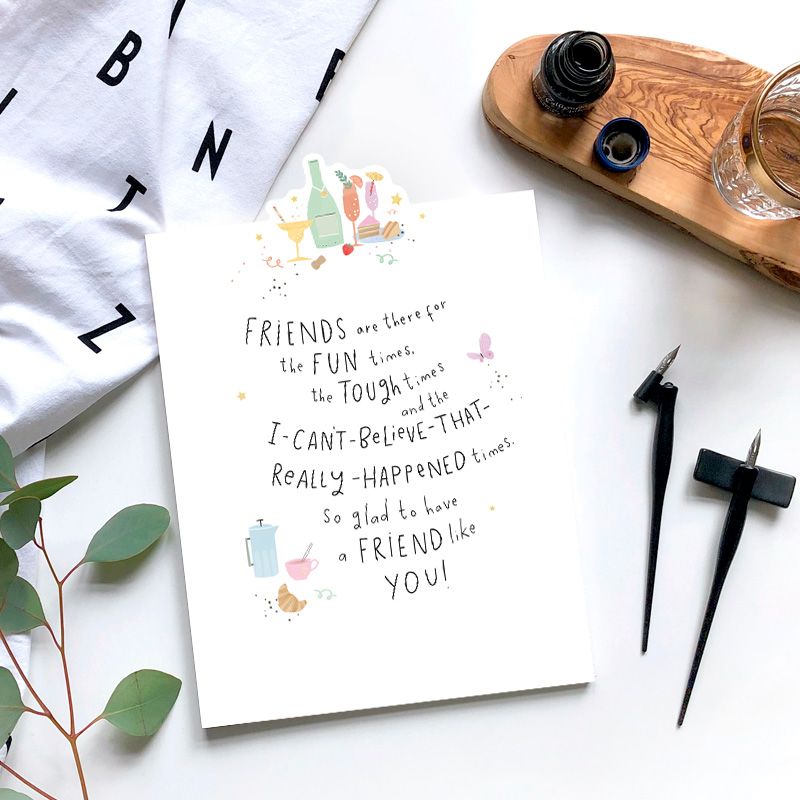 B
N
T
Z
FRIENDS are there for
the FUN times,
the TOUGH times
and the
I-CAN'T-BELIEVE-THAT-
REALLY-HAPPENED times.
So glad to have
a FRIEND like
YOU!